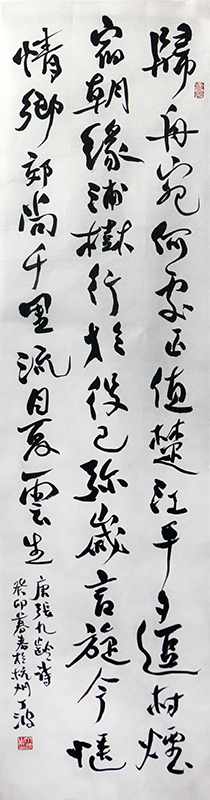 歸舟宛何處正值楚江平夕逗村煙
宿朝緣浦樹行於役已弥歲言旋今愜
情鄉郊尚千里流目夏雲生
唐張九齡詩
癸卯春書於杭州